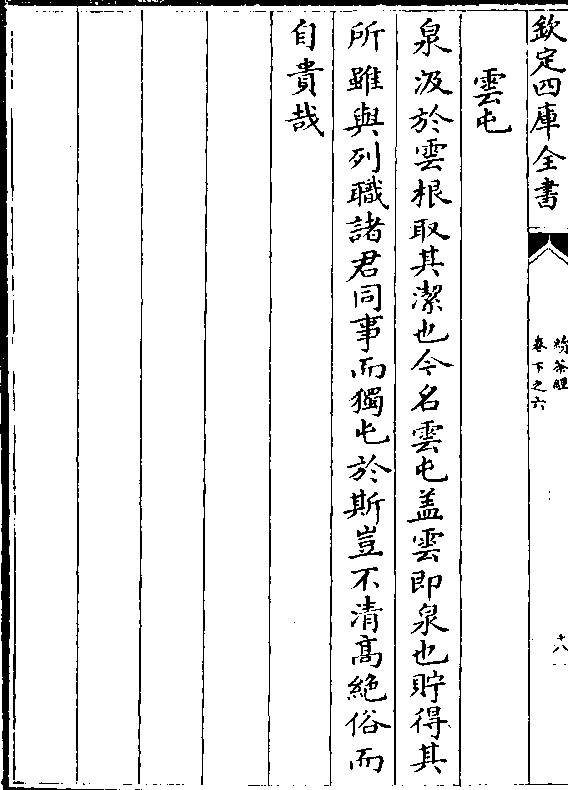 欽定四庫全書
續茶經
卷下之六
十八
雲屯
泉汲於雲根取其潔也今名雲屯盖雲即泉也貯得其
所雖與列職諸君同事而獨屯於斯豈不清髙絶俗而
自貴哉